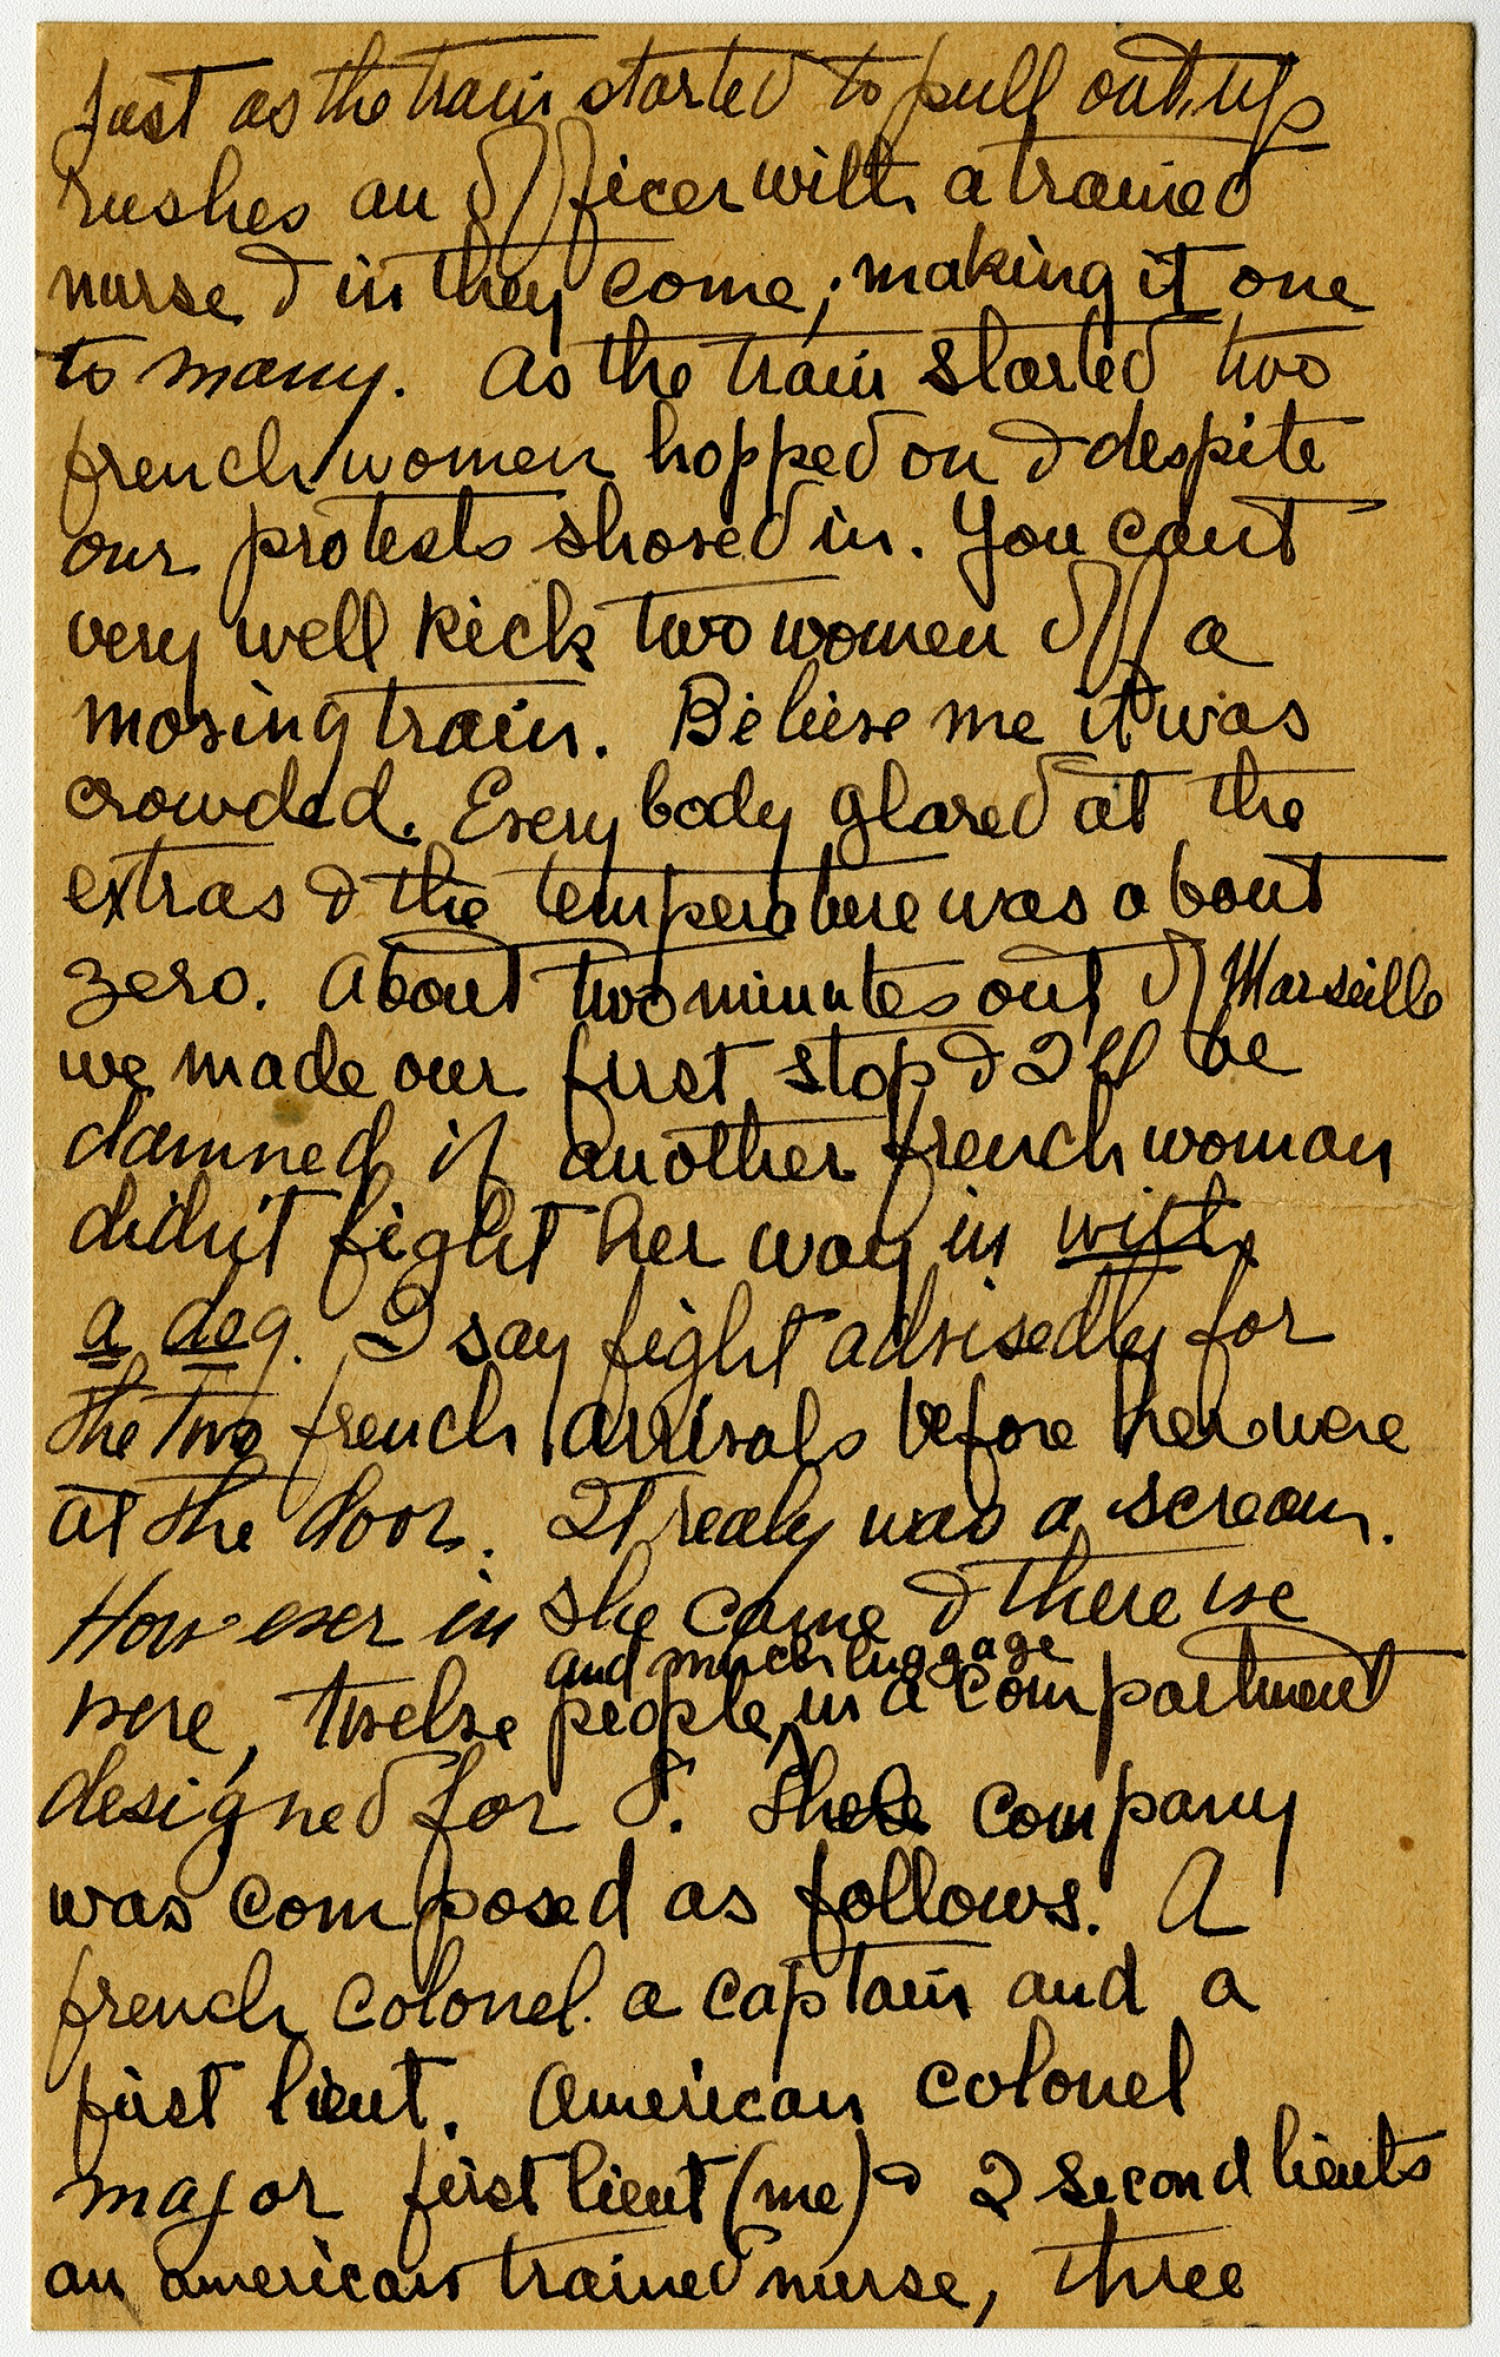 Just as the train started to pull out, up
rushes an officer with a trained
nurse & in they come; making it one
to many. As the train started two
french women hopped on & despite
our protests shoved in. You cant
very well kick two women off a
moving train. Believe me it was
crowded. Every body glared at the
extras & the temperature was about
zero. About two minutes out of Marseille
we made our first stop & I'll be
damned if another french woman
didn't fight her way in with
a dog. I say fight advisedly for
the two french arrivals before her were
at the door. It realy was a scream.
However in she came & there we
and much luggage
were, twelve people, in a compartment
designed for 8. The company
was composed as follows. A
french colonel. a captain and a
first lieut. American colonel
major first lieut (me) & 2 second lieuts
an american trained nurse, three